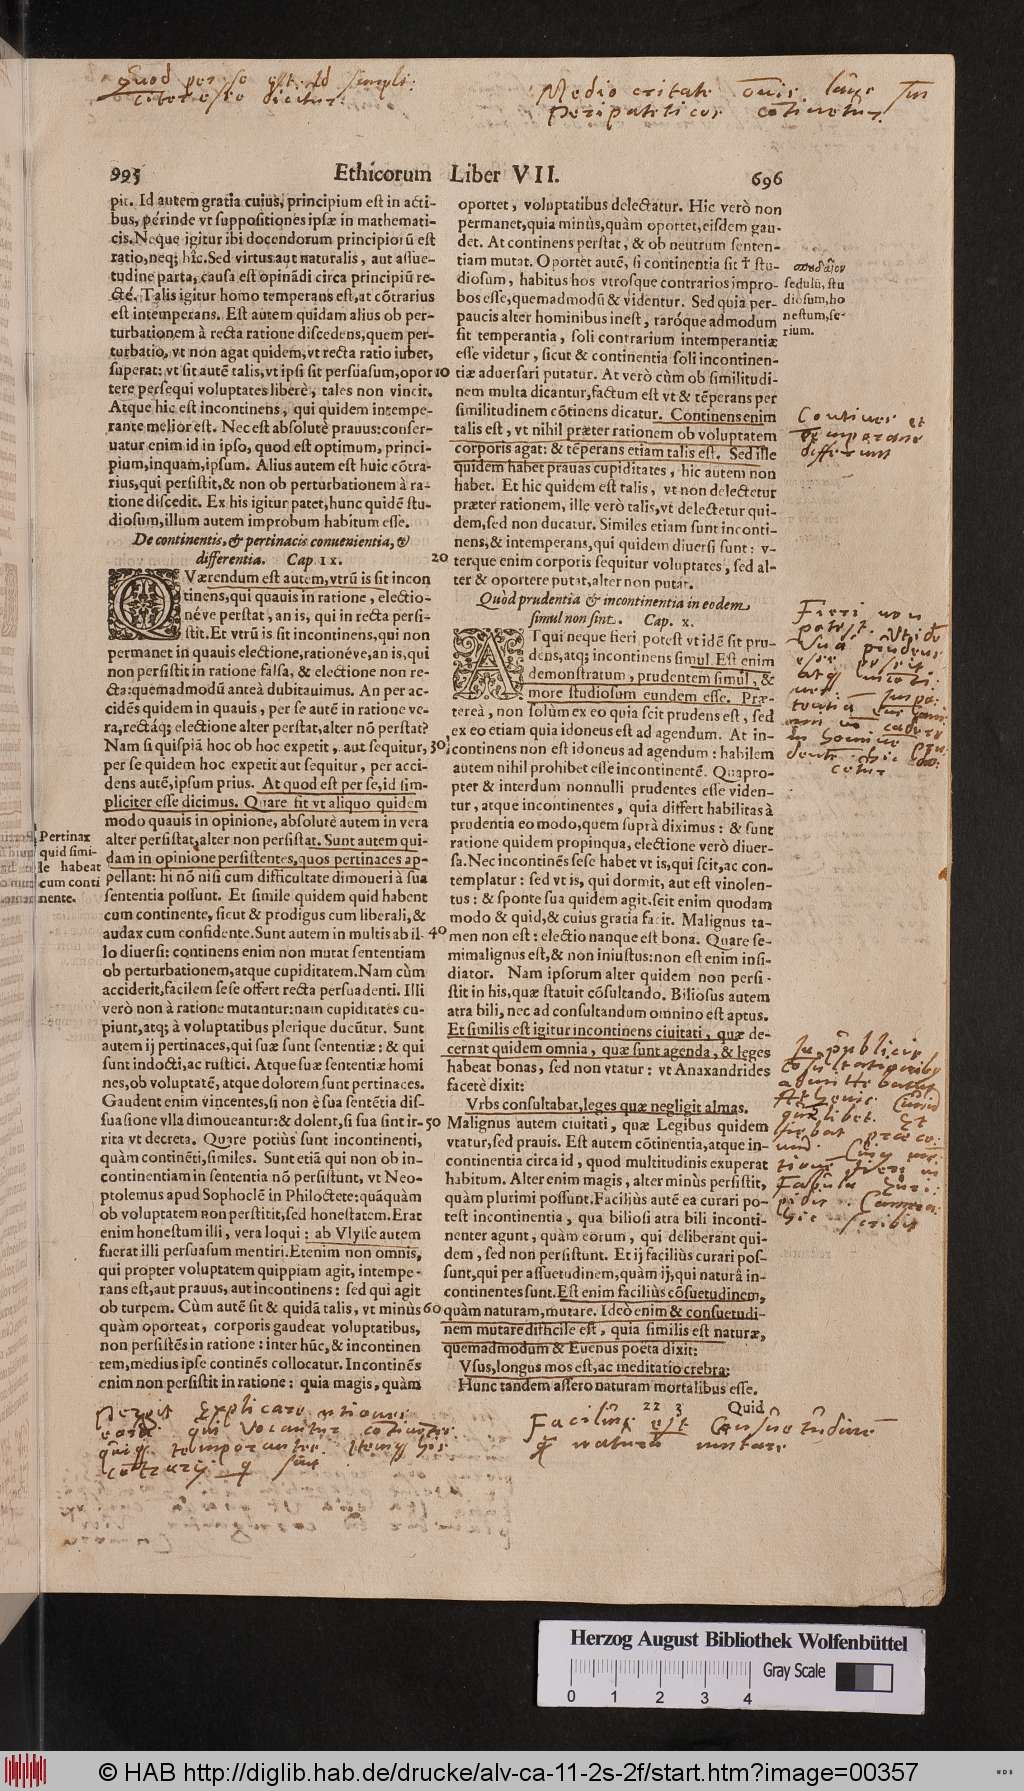 Quod per se est id simpli:
citer esse dicitur.
Mediocritate
Peripateticos continetur.
995 Ethicorum Liber VII. 696
pit. Id autem gratia cuius, principium est in acti-
bus, perinde vt suppositiones ipsæ in mathemati-
cis. Neque igitur ibi docendorum principiorū est
ratio, neq; hîc. Sed virtus aut naturalis, aut assue-
tudine parta, causa est opinādi circa principiū re-
ctè. Talis igitur homo temperans est, at cōtrarius
est intemperans. Est autem quidam alius ob per-
turbationem à recta ratione discedens, quem per-
turbatio, vt non agat quidem, vt recta ratio iubet,
superat: vt sit autē talis, vt ipsi sit persuasum, opor
tere persequi voluptates liberè, tales non vincit.
Atque hic est incontinens, qui quidem intempe-
rante melior est. Nec est absolutè prauus: conser-
uatur enim id in ipso, quod est optimum, princi-
pium, inquam, ipsum. Alius autem est huic cōtra-
rius, qui persistit, & non ob perturbationem à ra-
tione discedit. Ex his igitur patet, hunc quidē stu-
diosum, illum autem improbum habitum esse.
De continentis, & pertinacis conuenientia, &
differentia. Cap. IX.
QVærendum est autem, vtrū is sit incon
tinens, qui quauis in ratione, electio-
néve perstat, an is, qui in recta persi-
stit. Et vtrū is sit incontinens, qui non
permanet in quauis electione, rationéve, an is, qui
non persistit in ratione falsa, & electione non re-
cta: quemadmodū anteà dubitauimus. An per ac-
cidēs quidem in quauis, per se autē in ratione ve-
ra, rectáq; electione alter perstat, alter nō perstat?
Nam si quispiā hoc ob hoc expetit, aut sequitur,
per se quidem hoc expetit aut sequitur, per acci-
dens autē, ipsum prius. At quod est per se, id sim-
pliciter esse dicimus. Quare fit vt aliquo quidem
modo quauis in opinione, absolutè autem in vera
alter persistat, alter non persistat. Sunt autem qui-
dam in opinione persistentes, quos pertinaces ap-
pellant: hi nō nisi cum difficultate dimoueri à sua
sententia possunt. Et simile quidem quid habent
cum continente, sicut & prodigus cum liberali, &
audax cum confidente. Sunt autem in multis ab il-
lo diuersi: continens enim non mutat sententiam
ob perturbationem, atque cupiditatem. Nam cùm
acciderit, facilem sese offert recta persuadenti. Illi
verò non à ratione mutantur: nam cupiditates cu-
piunt, atq; à voluptatibus plerique ducūtur. Sunt
autem ij pertinaces, qui suæ sunt sententiæ: & qui
sunt indocti, ac rustici. Atque suæ sententiæ homi
nes, ob voluptatē, atque dolorem sunt pertinaces.
Gaudent enim vincentes, si non è sua sentētia dis-
suasione vlla dimoueantur: & dolent, si sua sint ir-
rita vt decreta. Quare potiùs sunt incontinenti,
quàm continēti, similes. Sunt etiā qui non ob in-
continentiam in sententia nō persistunt, vt Neo-
ptolemus apud Sophoclē in Philoctete: quāquàm
ob voluptatem non perstitit, sed honestatem. Erat
enim honestum illi, vera loqui: ab Vlysse autem
fuerat illi persuasum mentiri. Etenim non omnis,
qui propter voluptatem quippiam agit, intempe-
rans est, aut prauus, aut incontinens: sed qui agit
ob turpem. Cùm autē sit & quidā talis, vt minùs
quàm oporteat, corporis gaudeat voluptatibus,
non persistēs in ratione: inter hūc, & incontinen
tem, medius ipse continēs collocatur. Incontinēs
enim non persistit in ratione: quia magis, quàm
Pertinax
quid simi-
le habeat
cum conti
nente.
10
20
30
40
50
60
oportet, voluptatibus delectatur. Hic verò non
permanet, quia minùs, quàm oportet, eisdem gau-
det. At continens perstat, & ob neutrum senten-
tiam mutat. Oportet autē, si continentia sit † stu-
diosum, habitus hos vtrosque contrarios impro-
bos esse, quemadmodū & videntur. Sed quia per-
paucis alter hominibus inest, raróque admodum
fit temperantia, soli contrarium intemperantiæ
esse videtur, sicut & continentia soli incontinen-
tiæ aduersari putatur. At verò cùm ob similitudi-
nem multa dicantur, factum est vt & tēperans per
similitudinem cōtinens dicatur. Continens enim
talis est, vt nihil præter rationem ob voluptatem
corporis agat: & tēperans etiam talis est. Sed ille
quidem habet prauas cupiditates, hic autem non
habet. Et hic quidem est talis, vt non delectetur
præter rationem, ille verò talis, vt delectetur qui-
dem, sed non ducatur. Similes etiam sunt inconti-
nens, & intemperans, qui quidem diuersi sunt: v-
terque enim corporis sequitur voluptates, sed al-
ter & oportere putat, alter non putat.
Quòd prudentia & incontinentia in eodem
simul non sint. Cap. X.
AT qui neque fieri potest vt idē sit pru-
dens, atq; incontinens simul. Est enim
demonstratum, prudentem simul, &
more studiosum eundem esse. Præ-
tereà, non solùm ex eo quia scit prudens est, sed
ex eo etiam quia idoneus est ad agendum. At in-
continens non est idoneus ad agendum: habilem
autem nihil prohibet esse incontinentē. Quapro-
pter & interdum nonnulli prudentes esse viden-
tur, atque incontinentes, quia differt habilitas à
prudentia eo modo, quem suprà diximus: & sunt
ratione quidem propinqua, electione verò diuer-
sa. Nec incontinēs sese habet vt is, qui scit, ac con-
templatur: sed vt is, qui dormit, aut est vinolen-
tus: & sponte sua quidem agit. scit enim quodam
modo & quid, & cuius gratia facit. Malignus ta-
men non est: electio nanque est bona. Quare se-
mimalignus est, & non iniustus: non est enim insi-
diator. Nam ipsorum alter quidem non persi-
stit in his, quæ statuit cōsultando. Biliosus autem
atra bili, nec ad consultandum omnino est aptus.
Et similis est igitur incontinens ciuitati, quæ de-
cernat quidem omnia, quæ sunt agenda, & leges
habeat bonas, sed non vtatur: vt Anaxandrides
facetè dixit:
Vrbs consultabat, leges quæ negligit almas.
Malignus autem ciuitati, quæ Legibus quidem
vtatur, sed prauis. Est autem cōtinentia, atque in-
continentia circa id, quod multitudinis exuperat
habitum. Alter enim magis, alter minùs persistit,
quàm plurimi possunt. Faciliùs autē ea curari po-
test incontinentia, qua biliosi atra bili inconti-
nenter agunt, quàm eorum, qui deliberant qui-
dem, sed non persistunt. Et ij faciliùs curari pos-
sunt, qui per assuetudinem, quàm ij, qui naturâ in-
continentes sunt. Est enim faciliùs cōsuetudinem,
quàm naturam, mutare. Ideò enim & consuetudi-
nem mutare difficile est, quia similis est naturæ,
quemadmodum & Euenus poëta dixit:
Vsus, longus mos est, ac meditatio crebra:
Hunc tandem assero naturam mortalibus esse.
22 3 Quid
σπουδαῖον
sedulū, stu
diosum, ho
nestum, se-
rium.
Continens et
temperans
differunt
Fieri non
potest
prudens
esse possit
In publicis
Facilius est Consuetudinē
naturā mutare
Herzog August Bibliothek Wolfenbüttel
Gray Scale
0 1 2 3 4
© HAB http://diglib.hab.de/drucke/alv-ca-11-2s-2f/start.htm?image=00357